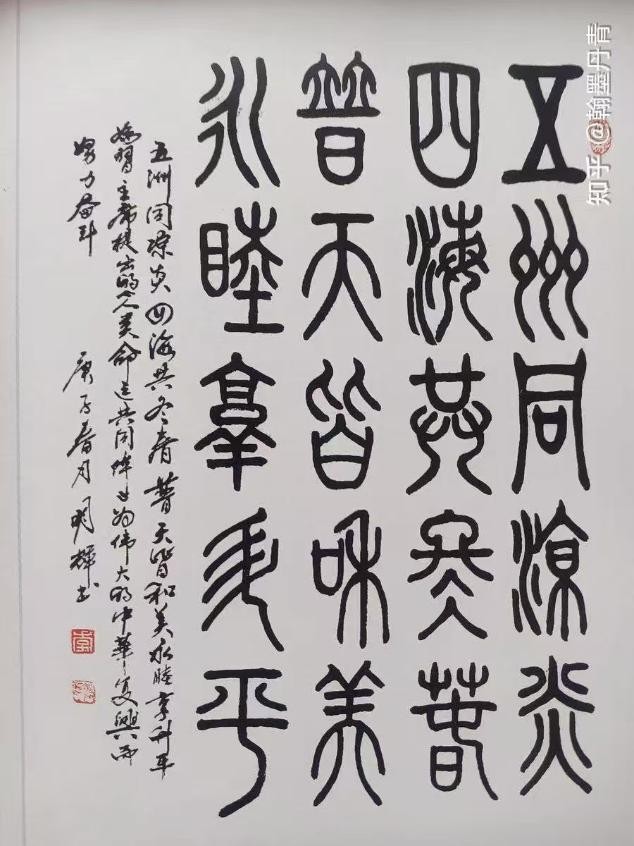 五州同涼炎
四海共冬春
普天皆和美
永睦享升平
五洲同凉炎四海共冬春普天皆和美永睦享升平
习主席提出的人类命运共同体也为伟大的中华复興而
努力奋斗 庚子春月
知乎 @翰墨丹青